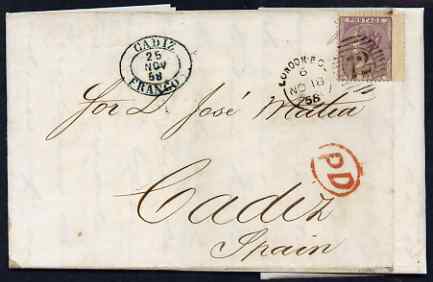 POSTAGE
CADIZ
25
NOV
58
FRANCO
LONDON
NO 18
58
12
Sor D. José Matia
PD
Cadiz
Spain